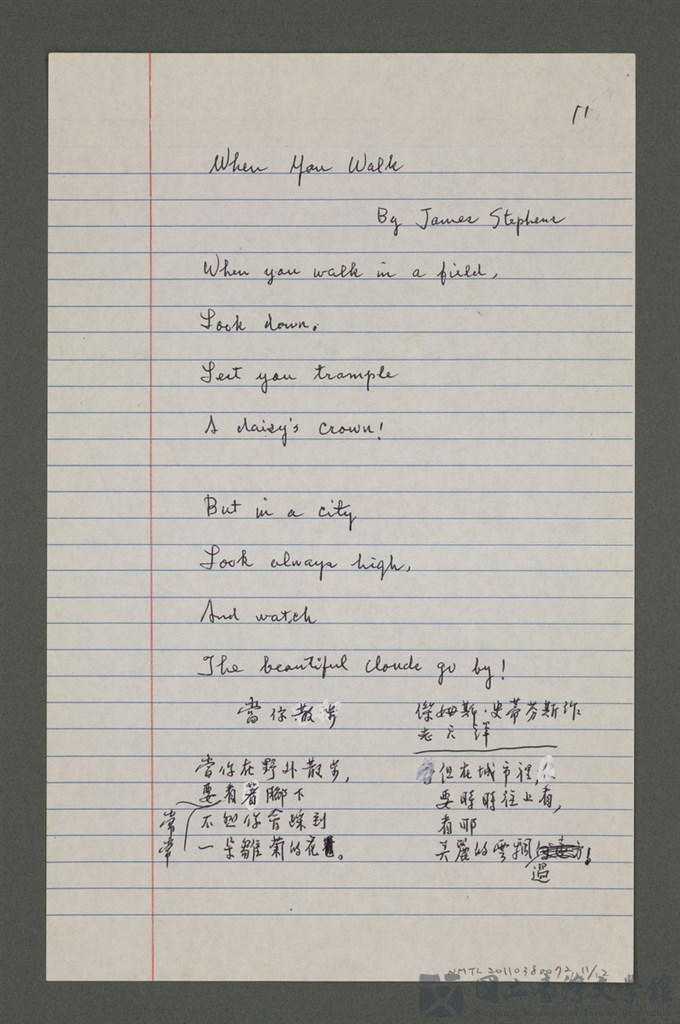 11
When You Walk
By James Stephens
When you walk in a field,
Look down.
Lest you trample
A daisy's crown!
But in a city
Look always high,
And watch
The beautiful clouds go by!
當你散步
傑姆斯·史蒂芬斯作
老六譯
當你在野外散步,
要看著腳下
不然你會踩到
一朵雛菊的花。
常常
但在城市裡,
要時時往上看,
看那
美麗的雲飄
過!
NMTL20110380092, 11/12
國立臺灣文學館
National Museum of Taiwan Literature